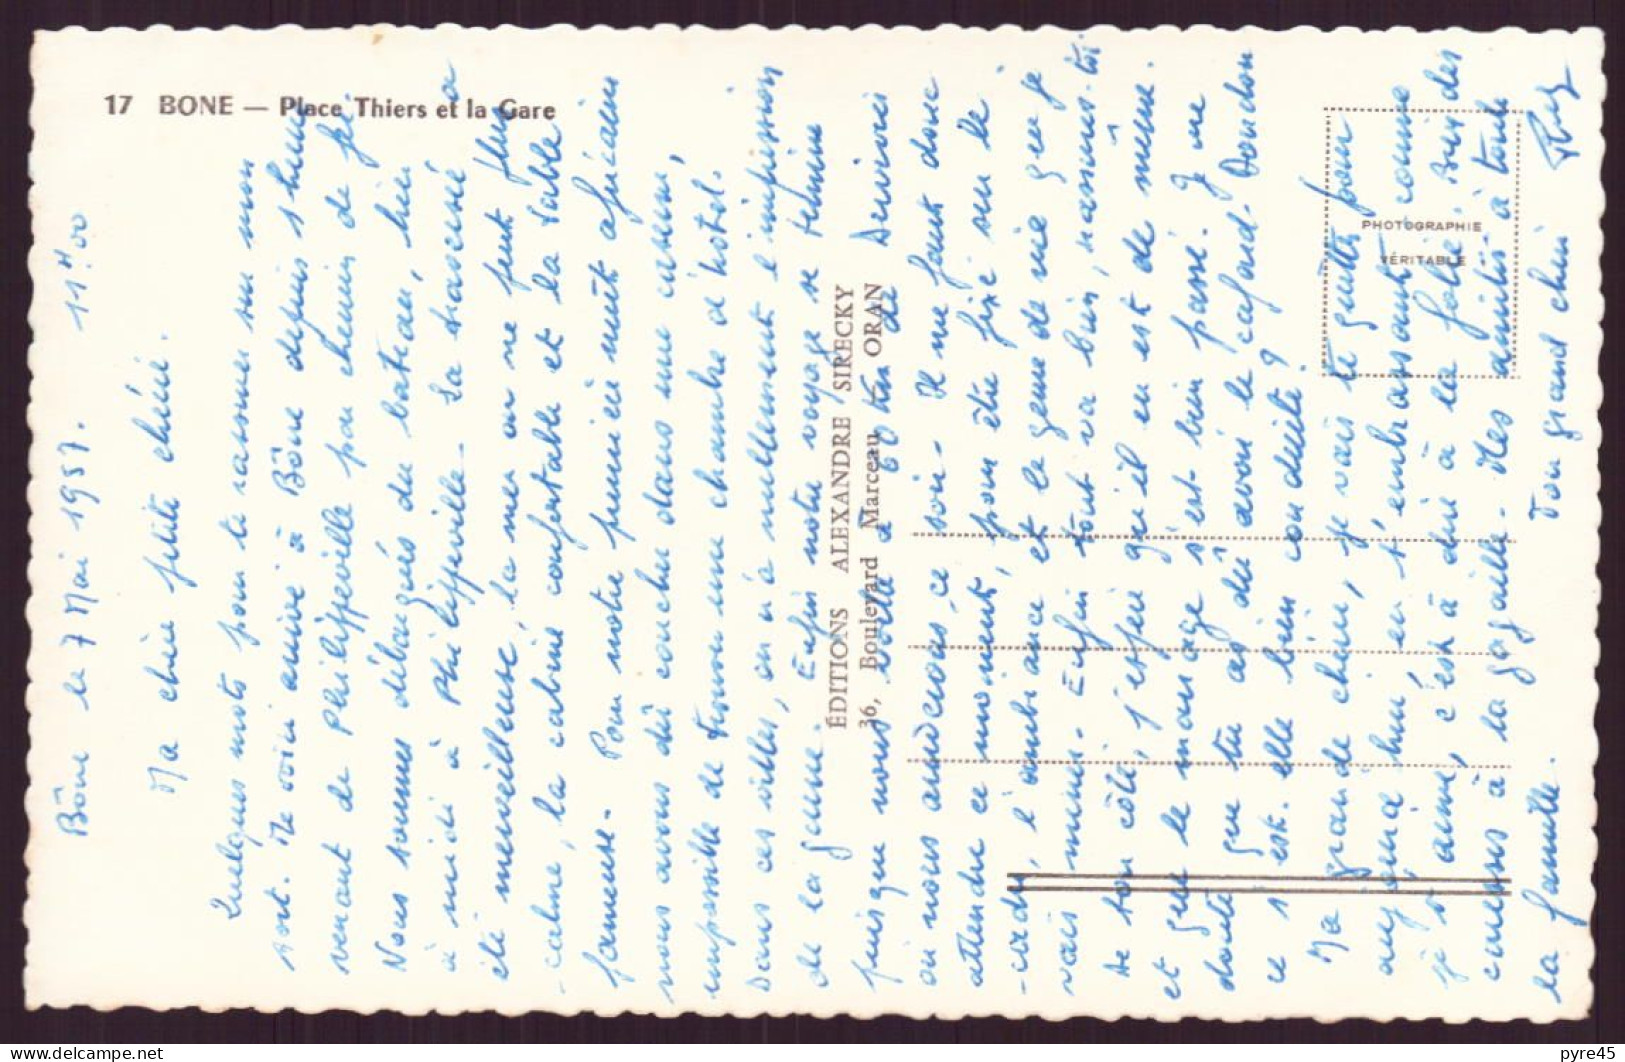 17 BONE — Place Thiers et la Gare
ÉDITIONS ALEXANDRE SIRECKY
36, Boulevard Marceau — ORAN
PHOTOGRAPHIE
VÉRITABLE
Bône le 7 Mai 1957. 11H00
Ma chère petite chérie.
Quelques mots pour te rassurer sur mon
sort. Me voici arrivé à Bône depuis 1 heure
venant de Philippeville par chemin de fer
Nous sommes débarqués du bateau, hier
à midi à Philippeville. La traversée a
été merveilleuse, la mer on ne peut plus
-calme, la cabine confortable et la table
fameuse. Pour notre première nuit africaine
nous avons dû coucher dans une caserne,
impossible de trouver une chambre d'hôtel.
Dans ces villes, on a nullement l'impression
de la guerre. Enfin notre voyage se termine
puisque nous voilà à 60 km de
où nous arriverons ce soir. Il me faut donc
attendre ce moment, pour être fixé sur le
-cadre, l'ambiance et le genre de vie que je
vais mener. Enfin tout va bien, rassures-toi
De ton côté, j'espère qu'il en est de même.
et que le mariage s'est bien passé. Je me
doute que tu as dû avoir le cafard. Doudou
ce s'est-elle bien conduite ?
Ma grande chérie, je vais te quitter pour
aujourd'hui, en t'embrassant comme
je t'aime, c'est à dire à la folie. Bises des
à la Mes amitiés à toute
la famille. Ton grand chéri
pyre45